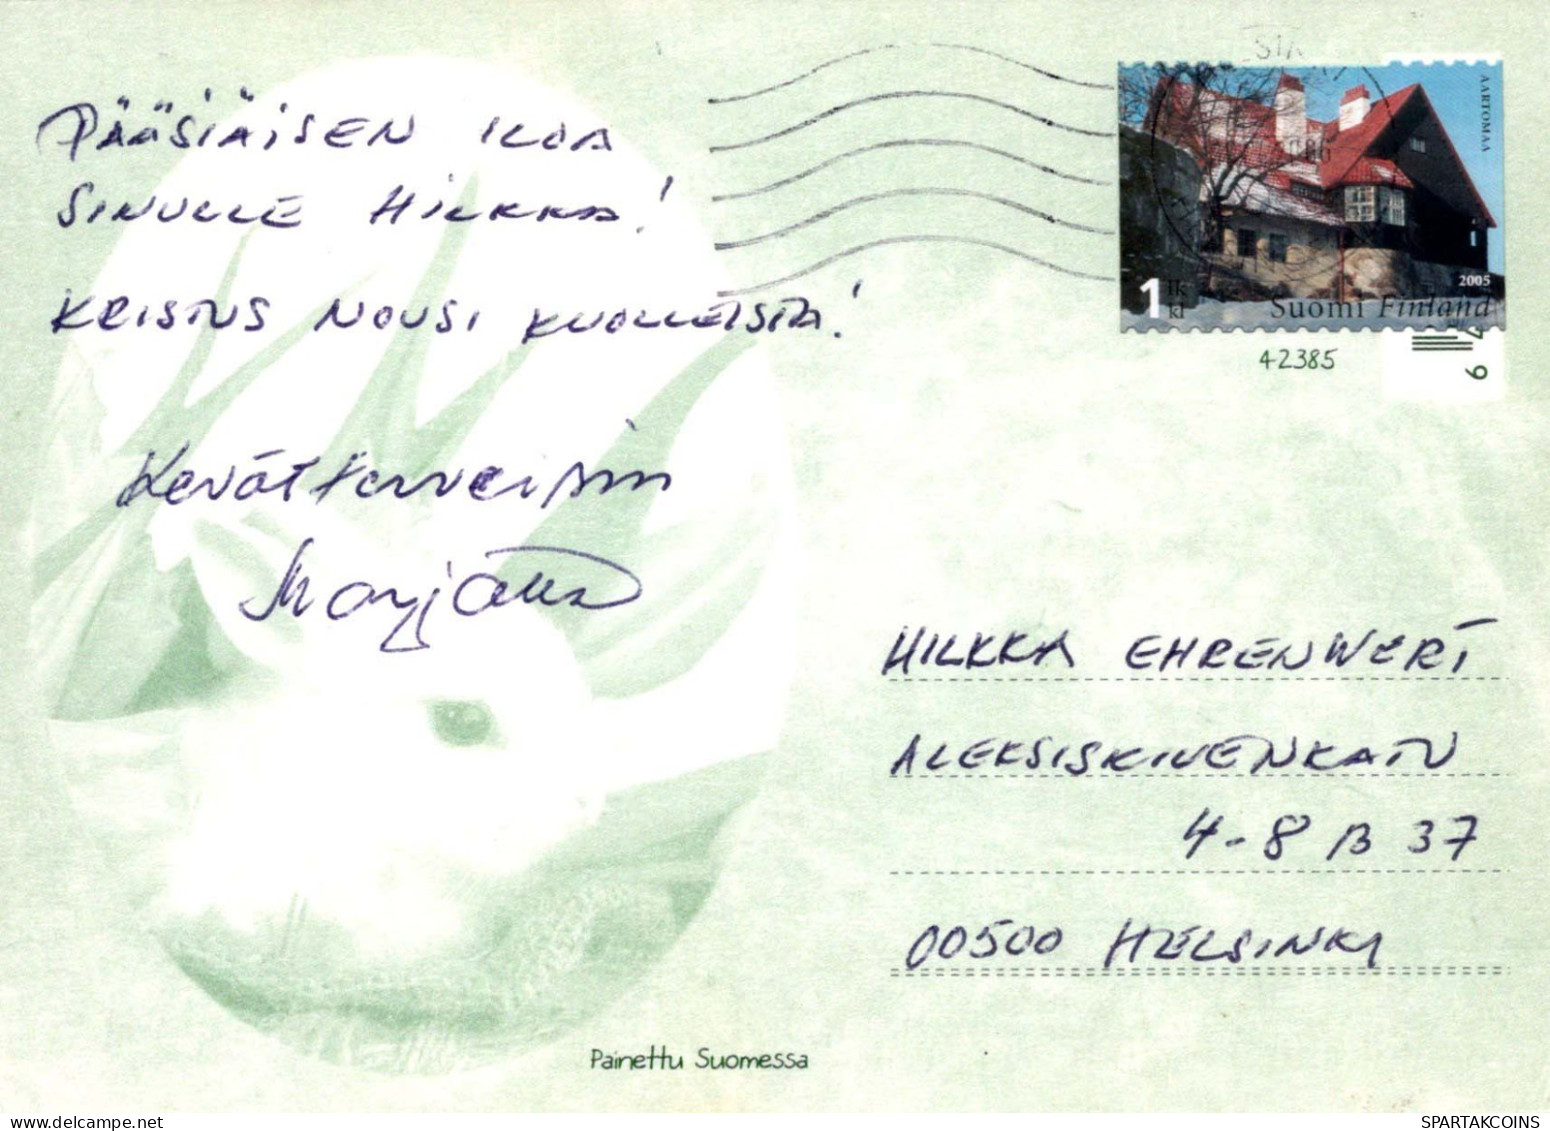 PÄÄSIÄISEN ILOA
SINULLE HILKKA!
KRISTUS NOUSI KUOLLEISTA!
Kevätterveisin
Marjatta
AARTOMAA
2005
1 lk kl
Suomi Finland
42385
9
HILKKA EHRENWERT
ALEKSISKIVENKATU
4-8 B 37
00500 HELSINKI
Painettu Suomessa
delcampe.net
SPARTAKCOINS